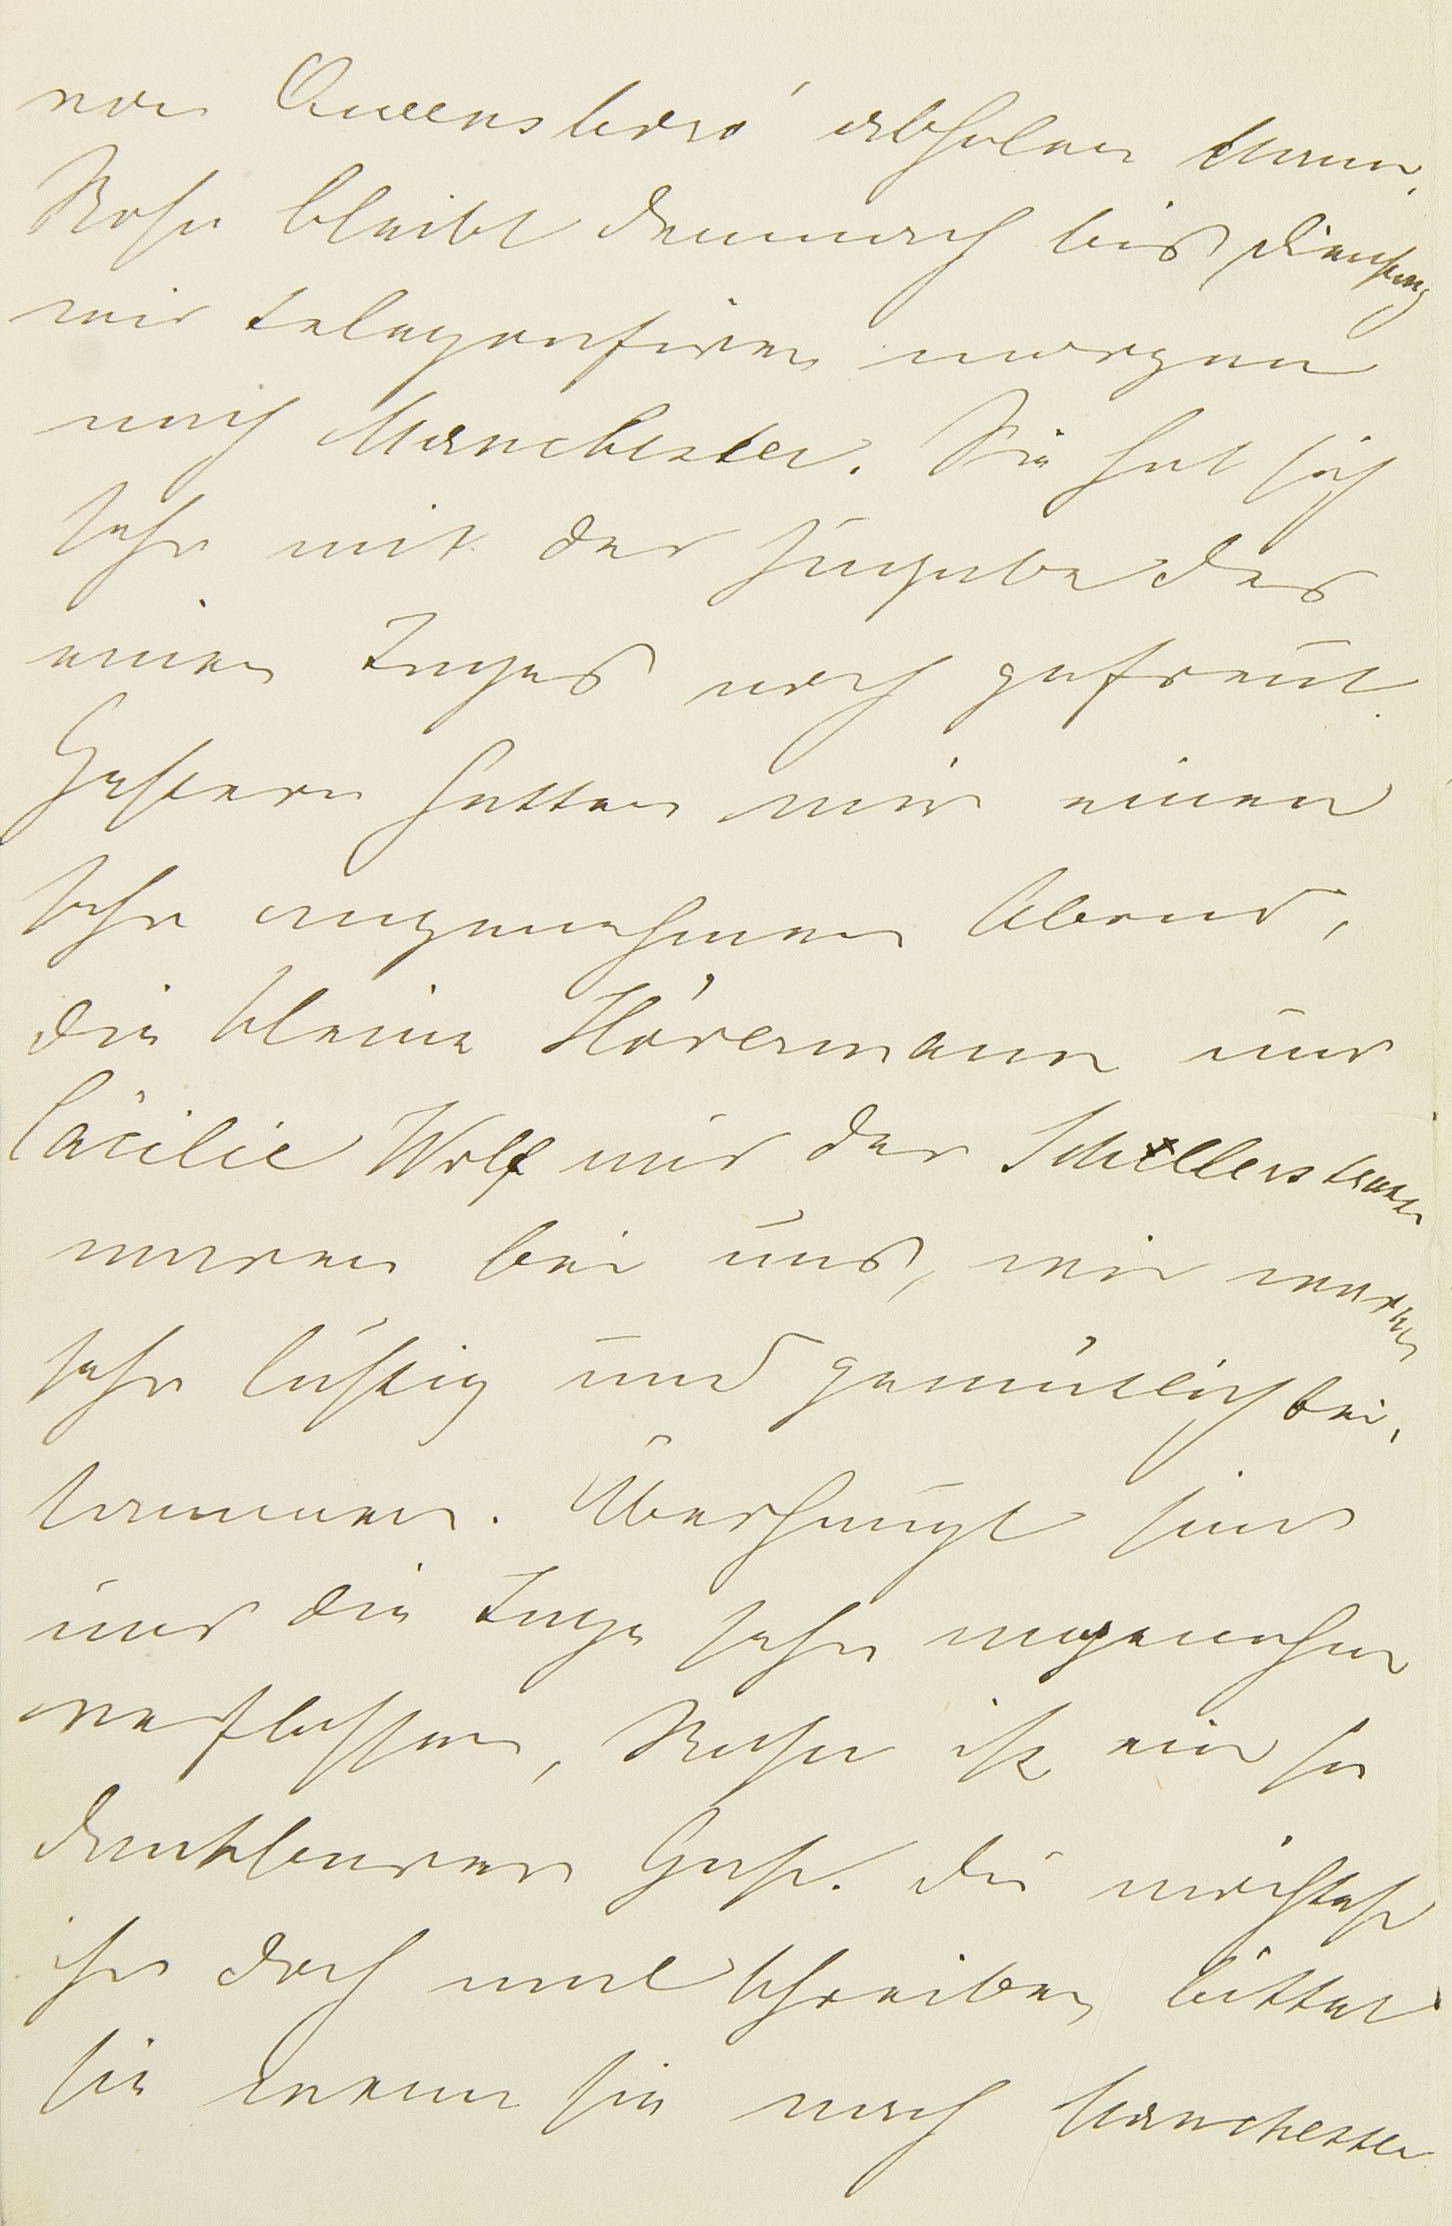 von Queensboro' abholen kann.
Rosa bleibt demnach bis Dienstag
wir telegrafiren morgen
nach Manchester. Sie hat sich
sehr mit der Zugabe des
einen Tages noch gefreut.
Gestern hatten wir einen
sehr angenehmen Abend,
die kleine Hörermann und
Cäcilie Wolf aus der Schillerstrasse
waren bei uns, wir waren
sehr lustig und gemütlich bei-
sammen. Überhaupt sind
uns die Tage sehr angenehm
verflossen, Rosa ist ein so
dankbarer Gast. Du möchtest
ihr doch mal schreiben bittet
sie wenn sie nach Manchester